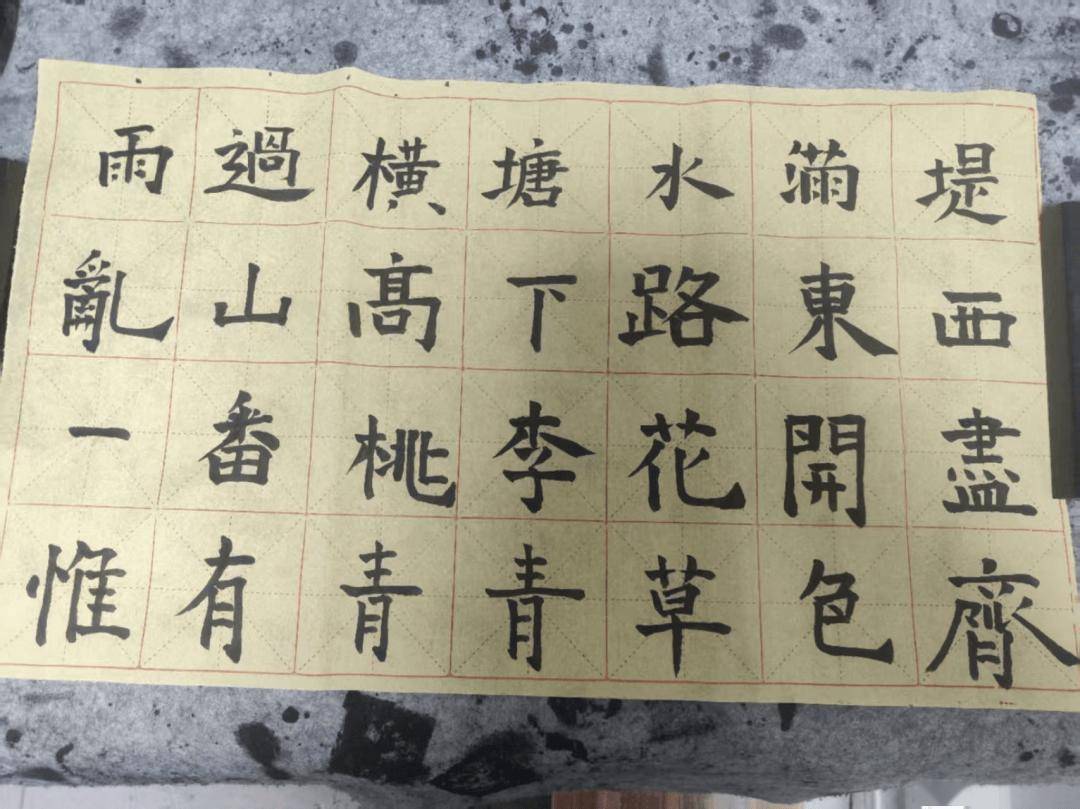 雨過橫塘水滿堤
亂山高下路東西
一番桃李花開盡
惟有青青草色齊